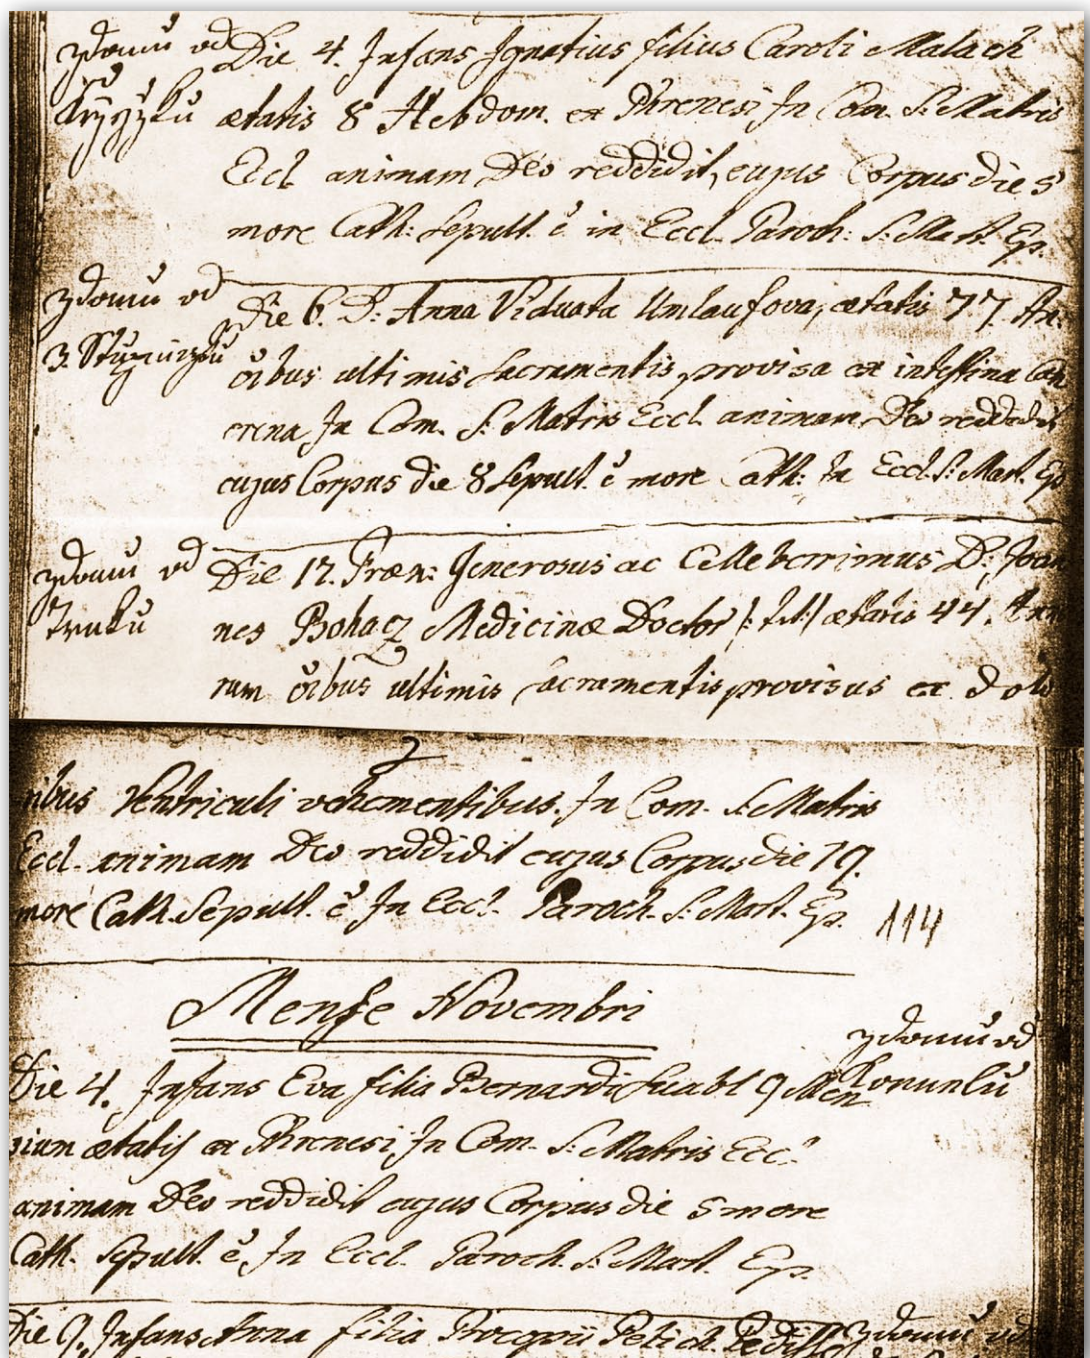 zdomu od Die 4. Infans Ignatius filius Caroli Malach
ætatis 8 Hebdom. ex Phrenesi In Com. S. Matris
Eccl animam Deo reddidit, cujus Corpus die 5
more Cath: Sepult. ẽ in Eccl. Paroch: S. Mart. Ep.
zdomu od Die 6. D: Anna Viduata Umlaufova, ætatis 77. An:
3. oĩbus ultimis Sacramentis provisa ex intestina
In Com. S. Matris Eccl. animam Deo reddidit
cujus Corpus die 8 Sepult. ẽ more Cath: In Eccl. S: Mart. Ep
zdomu od Die 17. Præn: Generosus ac Celleberrimus D: Joan
nes Bohacz Medicinæ Doctor ætatis 44. Ann
rum oĩbus ultimis Sacramentis provisus ex dolo
ribus Ventriculi vehementibus. In Com. S. Matris
Eccl. animam Deo reddidit cujus Corpus die 19.
more Cath. Sepult. ẽ In Eccl. Paroch. S. Mart. Ep.
114
Mense Novembri
zdomu od
Die 4. Infans Eva filia Bernardi 9 Men
sium ætatis ex Phrenesi In Com. S. Matris Eccl
animam Deo reddidit cujus Corpus die 5 more
Cath. Sepult. ẽ, In Eccl. Paroch. S. Mart. Ep.
Die 9. Infans Anna filia Procopii zdomu od